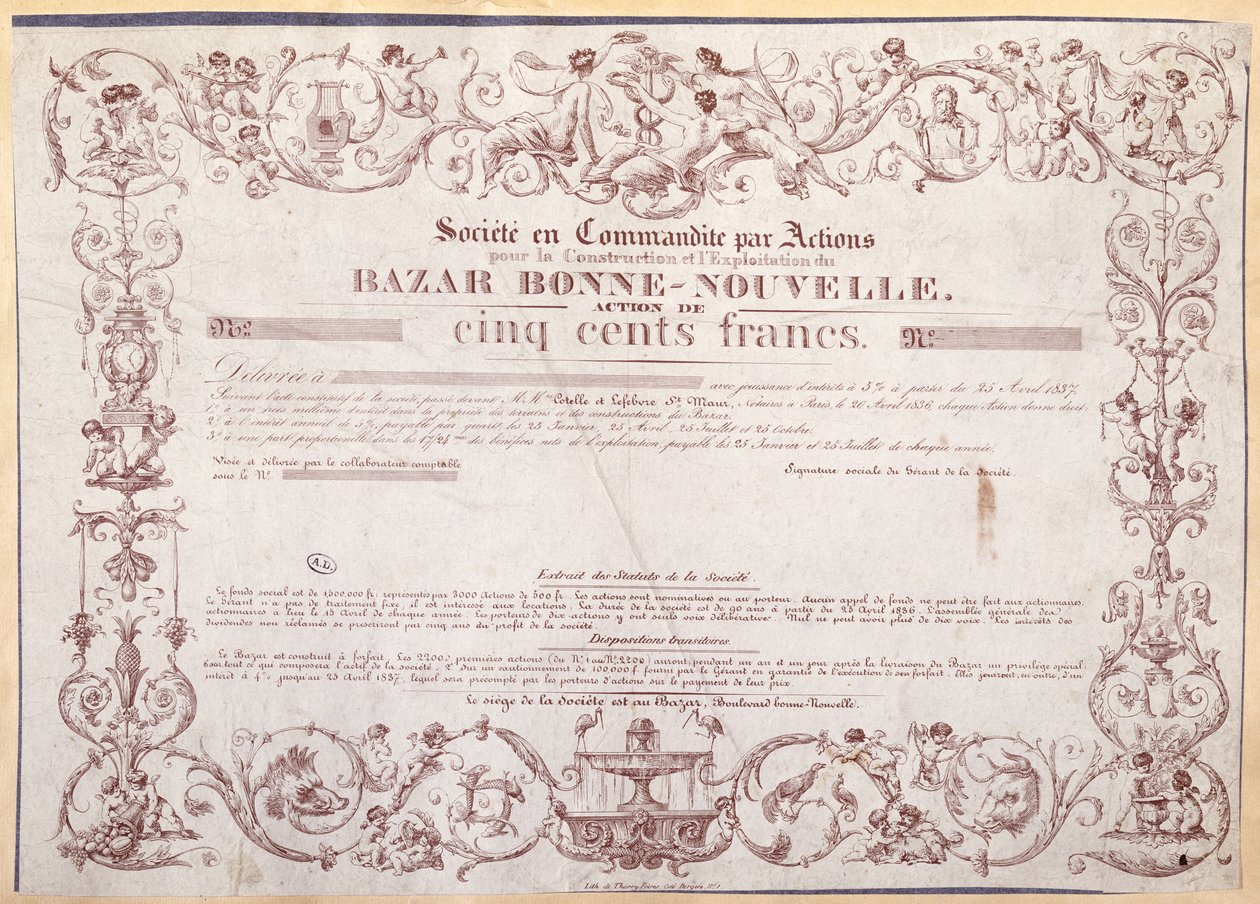 Société en Commandite par Actions
pour la Construction et l'Exploitation du
BAZAR BONNE-NOUVELLE.
ACTION DE
cinq cents francs.
No.
No.
Délivrée à avec jouissance d'intérêts à 5% à partir du 25 Avril 1837.
Suivant l'acte constitutif de la société, passé devant M. Me Cotelle et Lefebvre St. Maur, Notaires à Paris, le 20 Avril 1836, chaque Action donne droit:
1º à un trois millième d'intérêt dans la propriété des terrains et des constructions du Bazar.
2º à l'intérêt annuel de 5% payable par quart les 25 Janvier, 25 Avril, 25 Juillet et 25 Octobre.
3º à une part proportionelle dans les 17/24mes des bénéfices nets de l'exploitation, payable les 25 Janvier et 25 Juillet de chaque année.
Visée et délivrée par le collaborateur comptable
sous le No.
Signature sociale du Gérant de la Société.
A.D.
Extrait des Statuts de la Société.
Le fonds social est de 1,500,000 fr: représentés par 3000 Actions de 500 fr. Les actions sont nominatives ou au porteur. Aucun appel de fonds ne peut être fait aux actionnaires.
Le Gérant n'a pas de traitement fixe, il est intéressé aux locations. La durée de la société est de 90 ans à partir du 25 Avril 1836. L'assemblée générale des
actionnaires a lieu le 15 Avril de chaque année. Les porteurs de dix actions y ont seuls voix délibératives. Nul ne peut avoir plus de dix voix. Les intérêts des
dividendes non réclamés se prescrizont par cinq ans du profit de la société.
Dispositions transitoires.
Le Bazar est construit à forfait. Les 2200 premières actions (du No. 1 au No. 2200) auront, pendant un an et un jour après la livraison du Bazar un privilège spécial:
sur tout ce qui composera l'actif de la société; 2º Sur un cautionnement de 100,000 f. fourni par le Gérant en garantie de l'exécution de son forfait. Elles jouiront, en outre, d'un
intérêt à 4% jusqu'au 25 Avril 1837, lequel sera précompté par les porteurs d'actions sur le payement de leur prix.
Le siège de la Société est au Bazar, Boulevard bonne-Nouvelle.
Lith. de Thierry Frères Cité Bergère No. 1